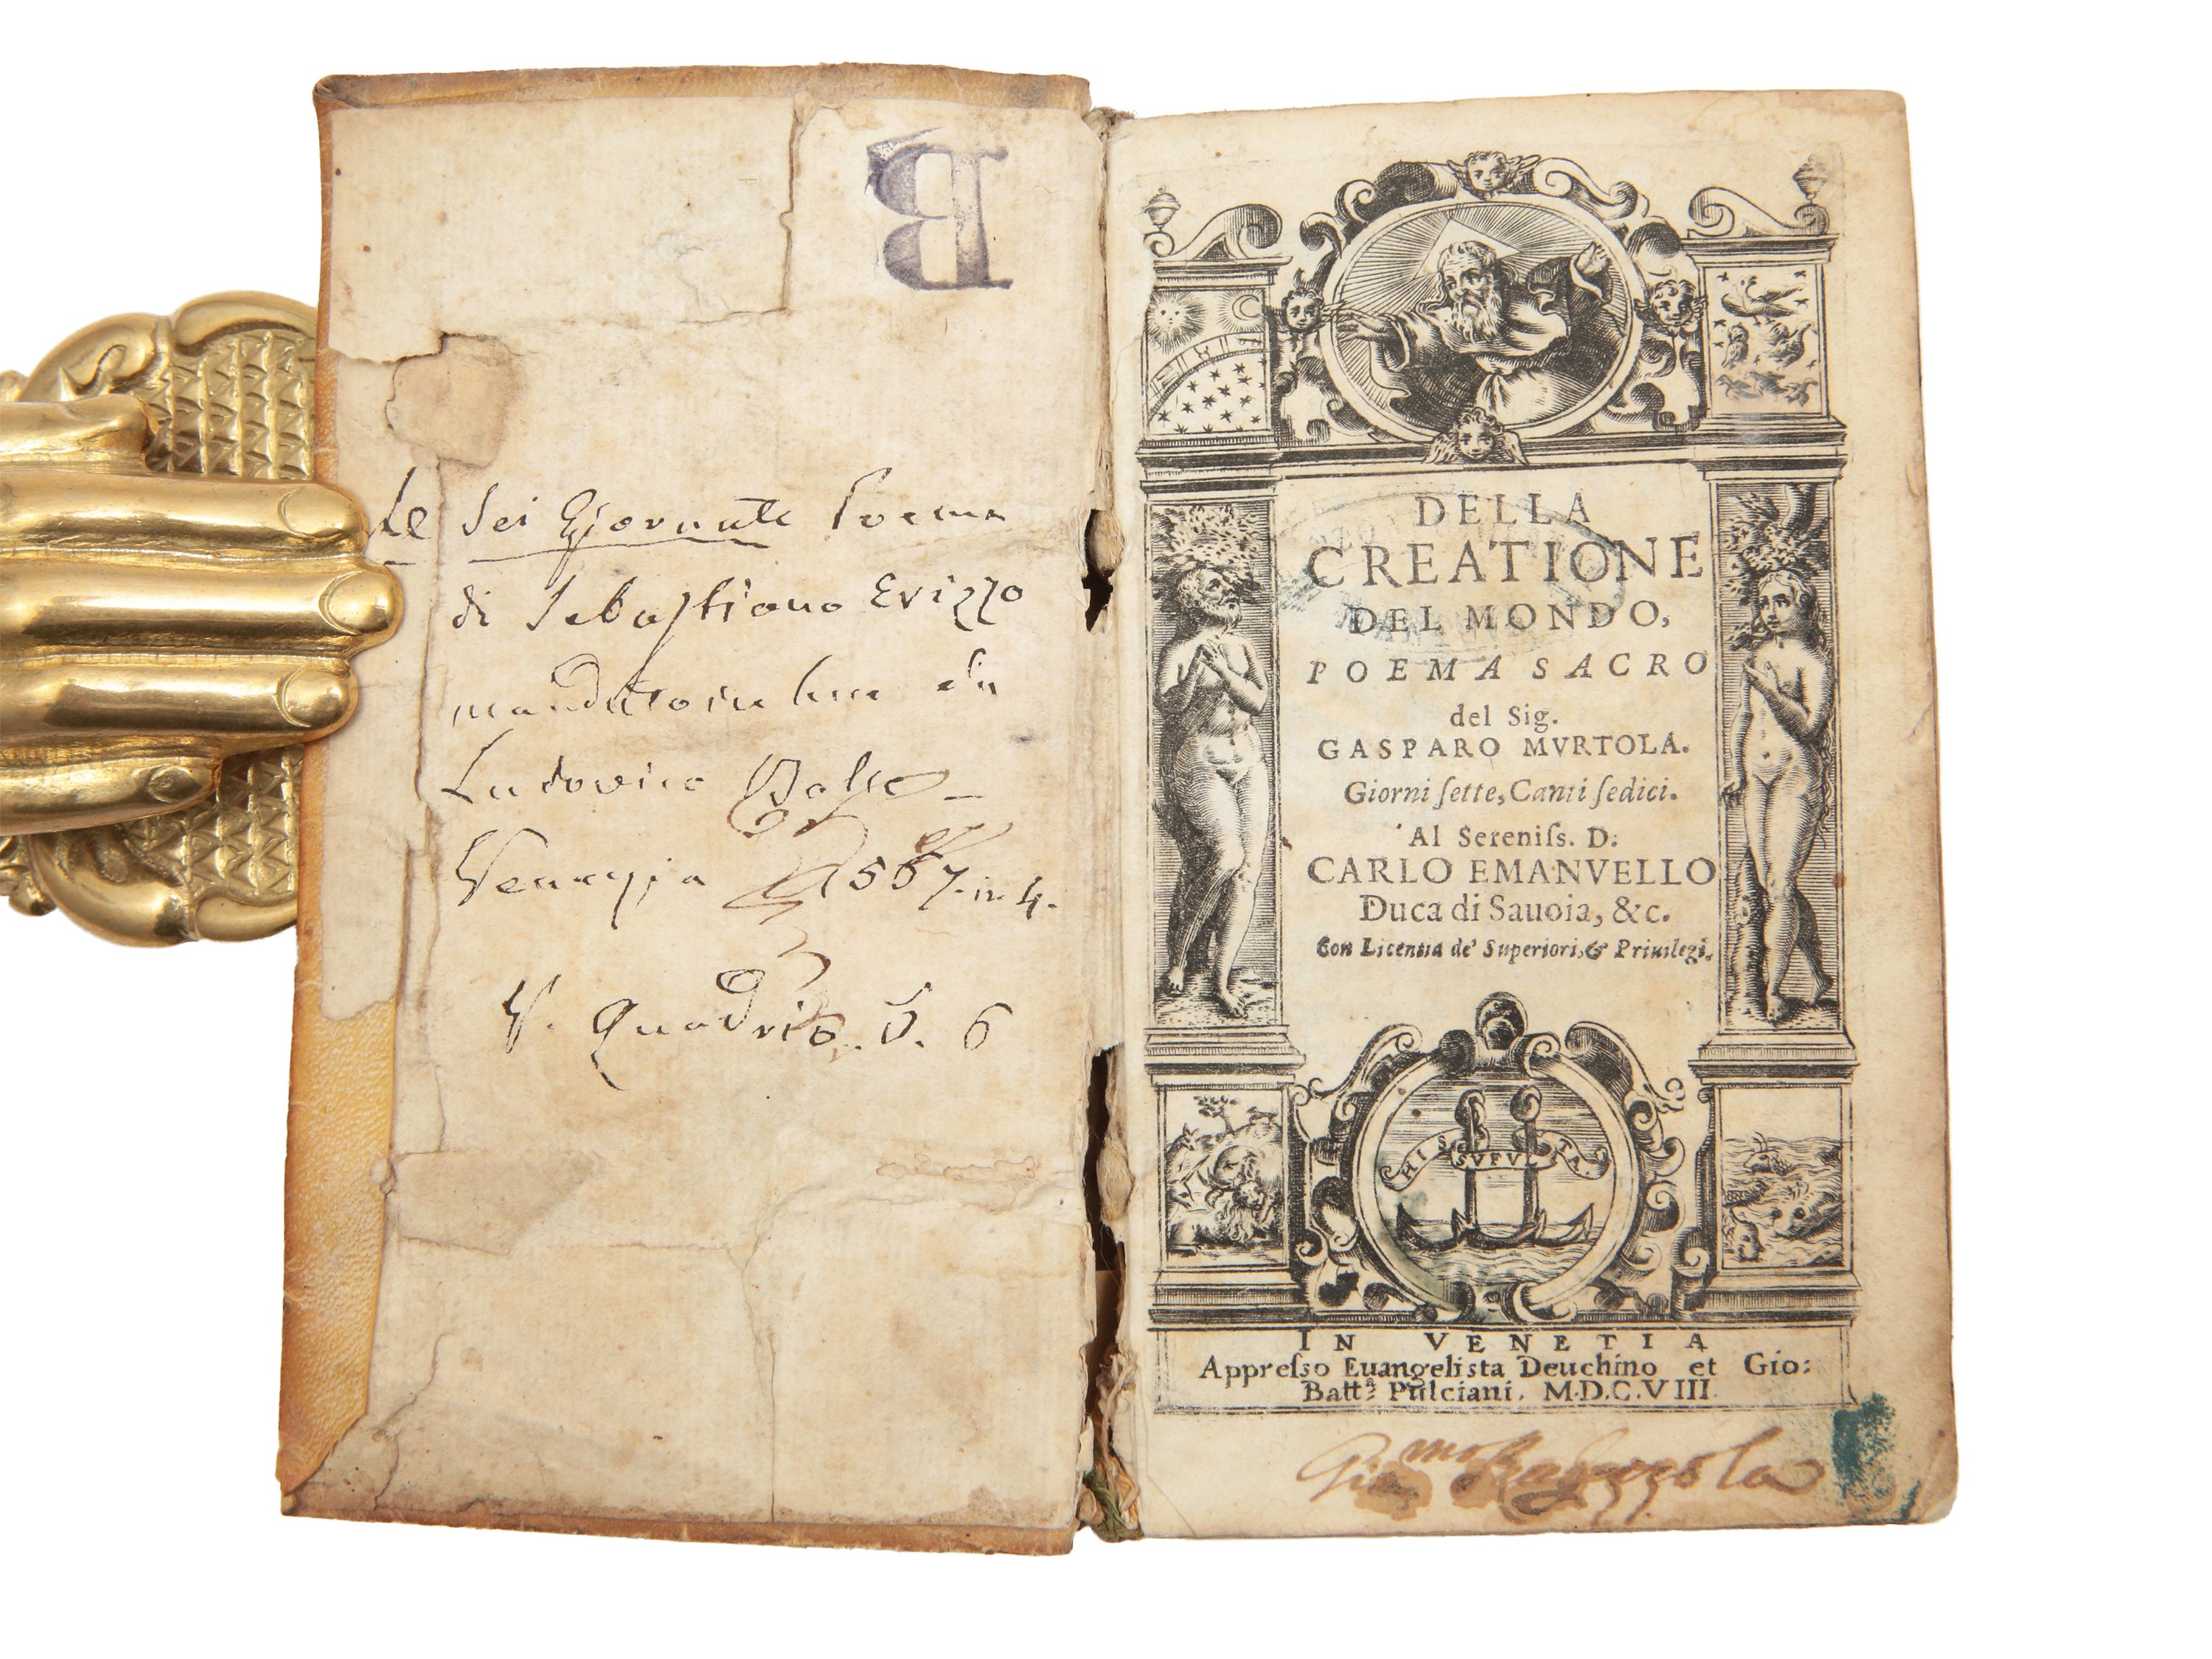 B
Le Sei Giornate Poema
di Sebastiano Erizzo
mandato in luce da
Ludovico Dolce
Venezia 1567. in 4.
V. Quadrio. 6
DELLA
CREATIONE
DEL MONDO,
POEMA SACRO
del Sig.
GASPARO MVRTOLA.
Giorni ſette, Canti ſedici.
Al Sereniſs. D.
CARLO EMANVELLO
Duca di Sauoia, &c.
Con Licentia de' Superiori, & Priuilegi.
HIS SVFVLTA
IN VENETIA
Appreſso Euangelista Deuchino et Gio:
Batt.ª Pulciani. M.D.C.VIII.